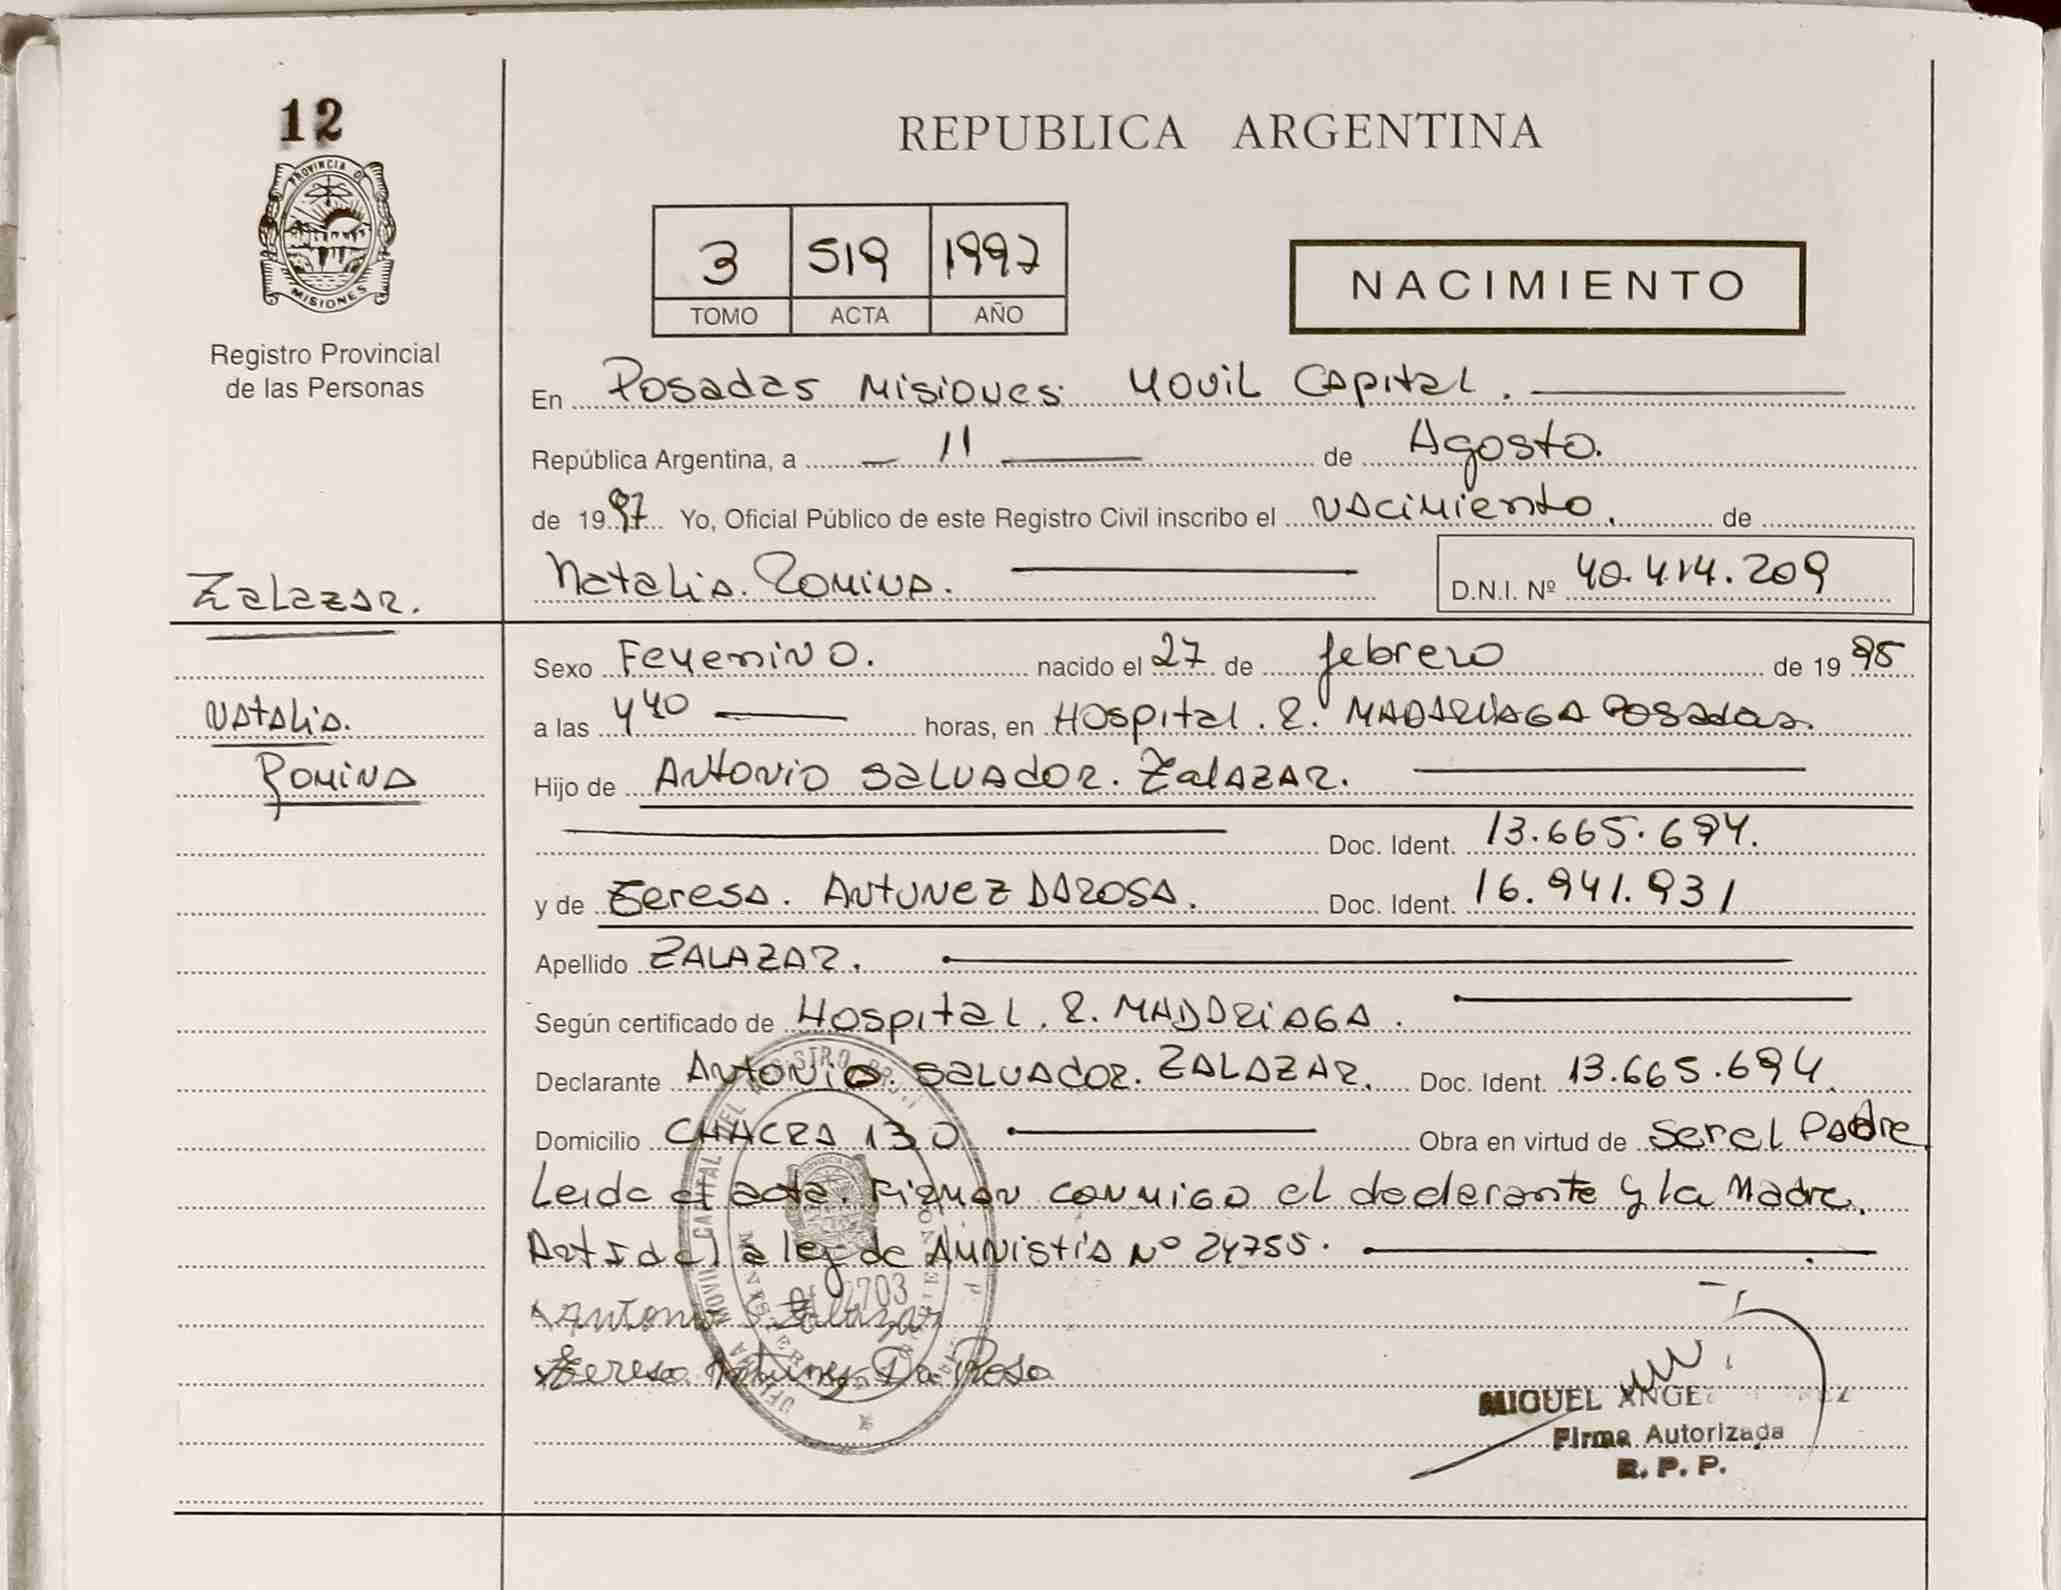 12
PROVINCIA D
MISIONES
Registro Provincial
de las Personas
REPUBLICA ARGENTINA
3 519 1997
TOMO ACTA AÑO
NACIMIENTO
En Posadas Misiones Movil Capital.
República Argentina, a 11 de Agosto.
de 1997 Yo, Oficial Público de este Registro Civil inscribo el nacimiento. de
Natalia. Romina. D.N.I. Nº 40.414.209
Zalazar.
Natalia.
Romina
Sexo Femenino. nacido el 27 de febrero de 1995
a las 4 40 horas, en Hospital. R. MADARIAGA Posadas.
Hijo de Antonio Salvador. Zalazar.
Doc. Ident. 13.665.694.
y de Teresa. Antunez DAROSA. Doc. Ident. 16.941.931
Apellido ZALAZAR.
Según certificado de Hospital. R. MADARIAGA.
Declarante Antonio. Salvador. ZALAZAR. Doc. Ident. 13.665.694.
Domicilio CHACRA 130 Obra en virtud de Ser el Padre
Leida el acta. Firman conmigo el declarante y la Madre.
Art 5 de la ley de Amnistia Nº 24755.
Antonio S. Zalazar
Teresa Antunez Da Rosa
MIGUEL ANGEL
Firma Autorizada
R. P. P.